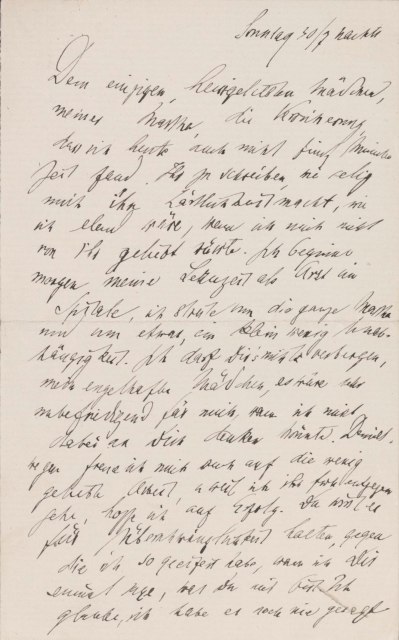 Sonntag 30/7 nachts
Dem einzigen, heißgeliebten Mädchen,
meiner Martha, die Versicherung,
daß ich heute auch nicht fünf Minuten
Zeit fand. Ihr zu schreiben, wie selig
mich ihre Zärtlichkeit macht, wie
ich elend wäre, wenn ich mich nicht
von Ihr geliebt wüßte. Ich beginne
morgen meine Lehrzeit als Arzt im
Spitale, ich strebe um die ganze Martha
nun um etwas, ein klein wenig Unab-
hängigkeit. Ich darf Dir's nicht verbergen,
mein engelhaftes Mädchen, es wäre
unbefriedigend für mich, wenn ich nicht
dabei an Dich denken könnte. Deinet-
wegen freue ich mich auch auf die wenig
geliebte Arbeit, u weil ich ihr
gehe, hoffe ich auf Erfolg. Du wirst es
für Überschwänglichkeit halten, gegen
die ich so geeifert habe, wenn ich Dir
einmal sage, was Du mir bist. Ich
glaube, ich habe es noch nie gesagt